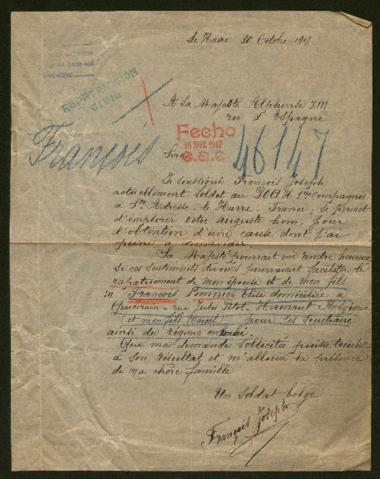 Le Havre 30 Octobre 1917
REPATRIACION
CIVIL
François
A Sa Majesté Alphonse XIII
roi d'Espagne
Fecho
46147
Sire
Je soussigné François Joseph
actuellement soldat au 1re Compagnie
à Ste Adresse. le Havre. France, se permet
d'implorer votre auguste nom. pour
l'obtention d'une cause dont j'ai
peine à demander.
Sa Majesté pourrait me rendre heureux
si ces sentiments divers pourraient faciliter le
rapatriement de mon épouse et de mon fils
François Pommier domiciliée à
Quiévrain. rue Jules Hainaut Belgique
et mon fils pour les soustraire
ainsi du régime
Que ma demande sollicitée puisse toucher
à son résultat et m'allouer la présence
de ma chère famille
Un Soldat belge
François Joseph